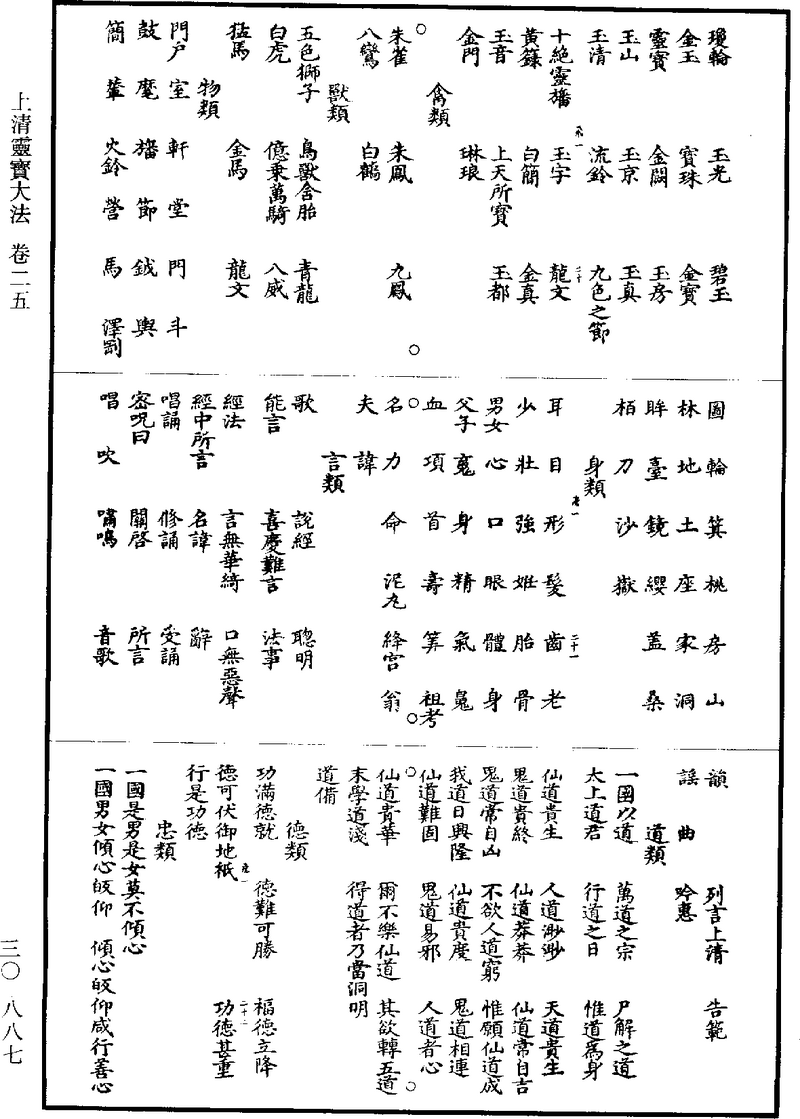 瓊輪　玉光　碧玉
金玉　寶珠　金寶
靈寶　金闕　玉房
玉山　玉京　玉真
玉清　流鈴　九色之節
十絕靈旛　玉字　龍文
黃籙　白簡　金真
玉音　上天所寶　玉都
金門　琳琅
禽類
朱雀　朱鳳　九鳳
八鸞　白鶴
獸類
五色獅子　鳥獸含胎　青龍
白虎　億乘萬騎　八威
猛馬　金馬　龍文
物類
門戶　室　軒　堂　門　斗
鼓　麾　旛　節　鉞　輿
簡　輦　火鈴　營　馬　澤劉
圖　輪　箕　桃　房　山
林　地　土　座　家　洞
眸　臺　鏡　纓　蓋　桑
栢　刀　沙　嶽
身類
耳　目　形　髮　齒　老
少　壯　強　姙　胎　骨
男女　心　口　眼　體　身
父子　䰟　身　精　氣　䰟
血　項　首　壽　筭　祖考
名　力　命　泥丸　絳宮　翁
夫　諱
言類
歌　說經　聰明
能言　喜慶難言　法事
經法　言無華綺　口無惡聲
經中所言　名諱　辭
唱誦　修誦　受誦
密呪曰　關啓　所言
唱　吹　嘯鳴　音歌
韻　列言上清　告範
謡　曲　吟
道類
一國以道　萬道之宗　尸解之道
太上道君　行道之日　惟道爲身
仙道貴生　人道渺渺　天道貴生
鬼道貴終　仙道莽莽　仙道常自吉
鬼道常自凶　不欲人道窮　惟願仙道成
我道日興隆　仙道貴慶　鬼道相連
仙道難固　鬼道易邪　人道者心
仙道貴華　爾不樂仙道　其欲轉五道
末學道淺　得道者乃當洞明
道備
德類
功滿德就　德難可勝　福德立降
德可伏御地祇　功德甚重
行是功德
忠類
一國是男是女莫不傾心
一國男女傾心皈仰　傾心皈仰咸行善心
上清靈寶大法　卷二五
三〇　八八七